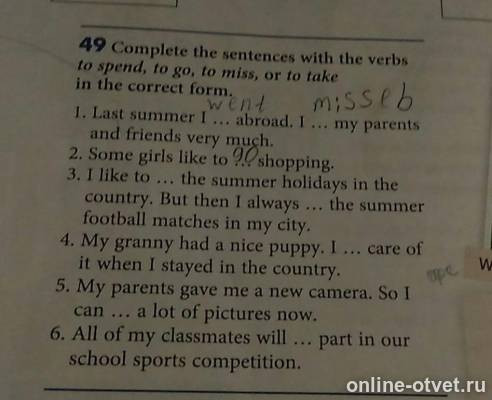 49 Complete the sentences with the verbs
to spend, to go, to miss, or to take
in the correct form.
went misseb
1. Last summer I ... abroad. I ... my parents
and friends very much.
2. Some girls like to go ... shopping.
3. I like to ... the summer holidays in the
country. But then I always ... the summer
football matches in my city.
4. My granny had a nice puppy. I ... care of
it when I stayed in the country.
5. My parents gave me a new camera. So I
can ... a lot of pictures now.
6. All of my classmates will ... part in our
school sports competition.
W
online-otvet.ru